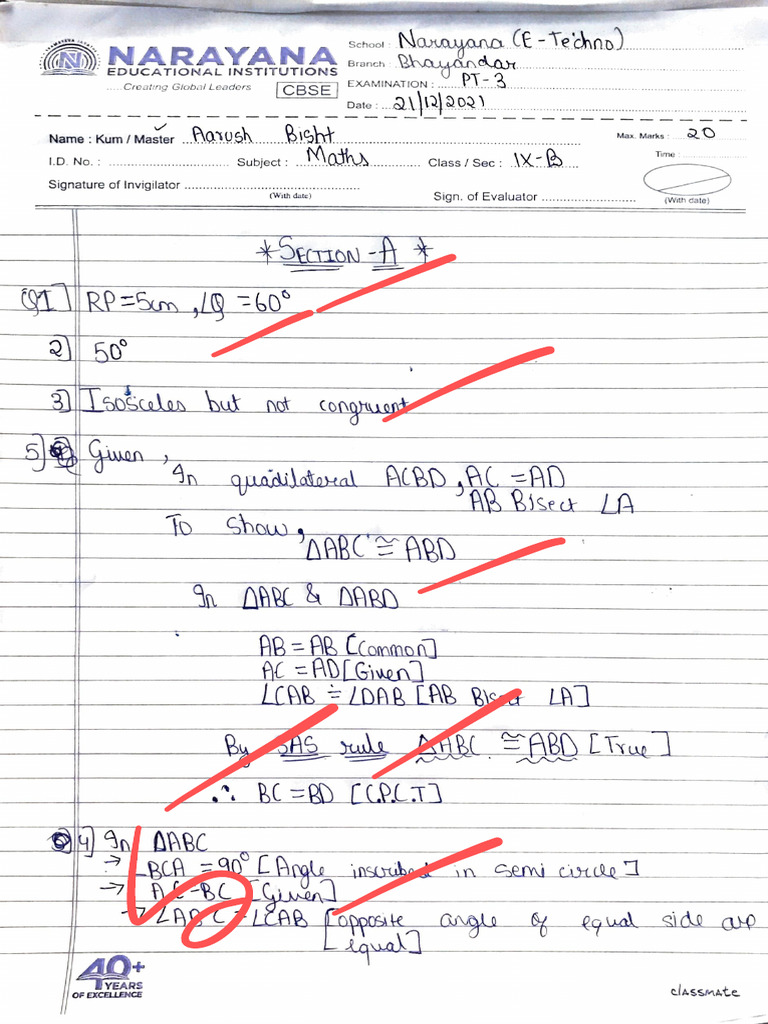 NARAYANA
EDUCATIONAL INSTITUTIONS
...Creating Global Leaders
CBSE
School : Narayana (E-Techno)
Branch : Bhayandar
EXAMINATION : PT-3
Date : 21/12/2021
Name : Kum / Master Aarush Bisht
Max. Marks : 20
I.D. No. :
Subject : Maths
Class / Sec : IX-B
Time :
Signature of Invigilator
(With date)
Sign. of Evaluator
(With date)
* SECTION - A *
Q1] RP = 5cm , ∠Q = 60°
2] 50°
3] Isosceles but not congruent
5] Given ,
In quadilateral ACBD , AC = AD
AB Bisect ∠A
To show ,
ΔABC ≅ ABD
In ΔABC & ΔABD
AB = AB [Common]
AC = AD [Given]
∠CAB = ∠DAB [AB Bisect ∠A]
By SAS rule ΔABC ≅ ABD [True]
∴ BC = BD [C.P.C.T]
4] In ΔABC
→ ∠BCA = 90° [Angle inscribed in semi circle]
→ AC = BC [Given]
→ ∠ABC = ∠CAB [opposite angle of equal side are
equal]
40+
YEARS
OF EXCELLENCE
classmate